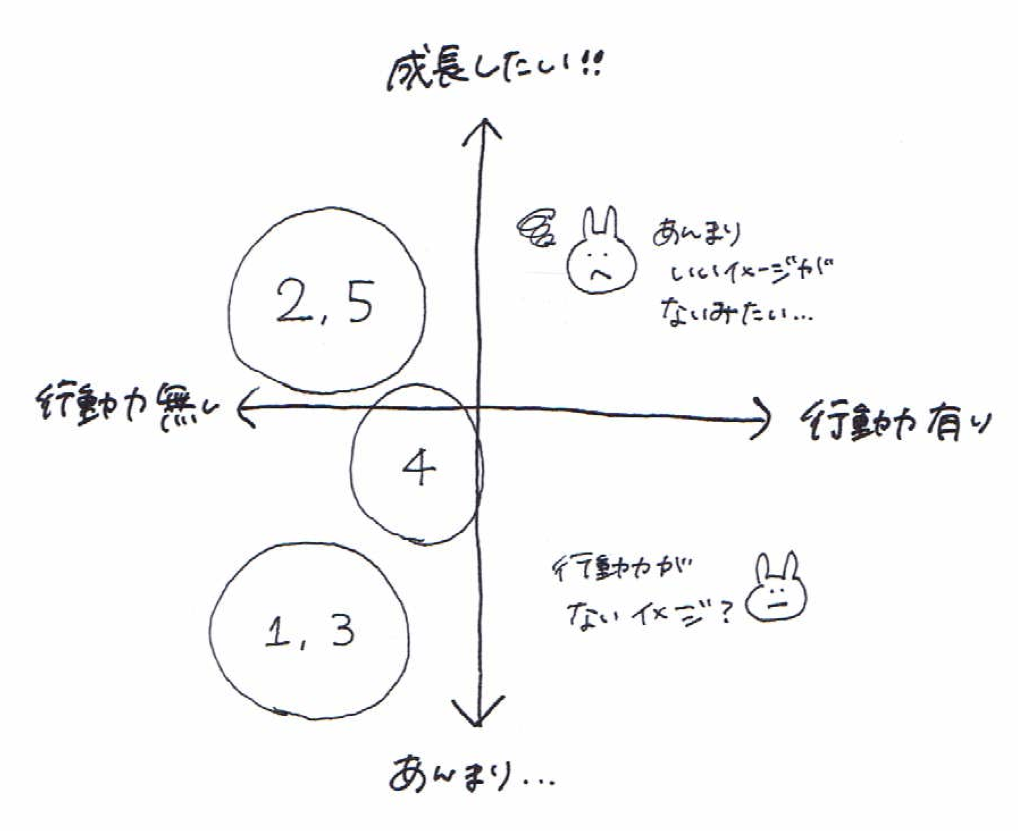 成長したい!!
あんまり
いいイメージが
ないみたい...
2, 5
行動力無し
行動力有り
4
行動力が
ないイメージ?
1, 3
あんまり...